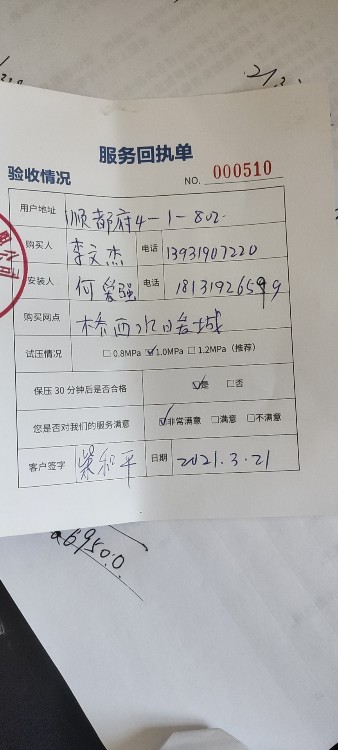 服务回执单
验收情况 NO. 000510
用户地址 顺都府4-1-802
购买人 李文杰 电话 13931907220
安装人 何爱强 电话
购买网点 桥西
试压情况 □0.8MPa ☑1.0MPa □1.2MPa（推荐）
保压30分钟后是否合格 ☑是 □否
您是否对我们的服务满意 ☑非常满意 □满意 □不满意
客户签字 柴和平 日期 2021.3.21
6950.0